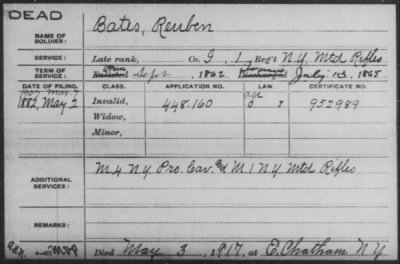 DEAD
NAME OF SOLDIER: Bates, Reuben
SERVICE: Late rank, Co. G, 1 Reg't N.Y. Mtd Rifles
TERM OF SERVICE: Enlisted Sept., 1862 Discharged July 13, 1865
DATE OF FILING. CLASS. APPLICATION NO. LAW. CERTIFICATE NO.
1907 Mar. 7 age
1882, May 2 Invalid, 448.160 952989
Widow,
Minor,
ADDITIONAL SERVICES: M 4 N.Y. Pro. Cav. and M 1 N.Y. Mtd Rifles
REMARKS:
Died May 3, 1917, at E. Chatham N Y